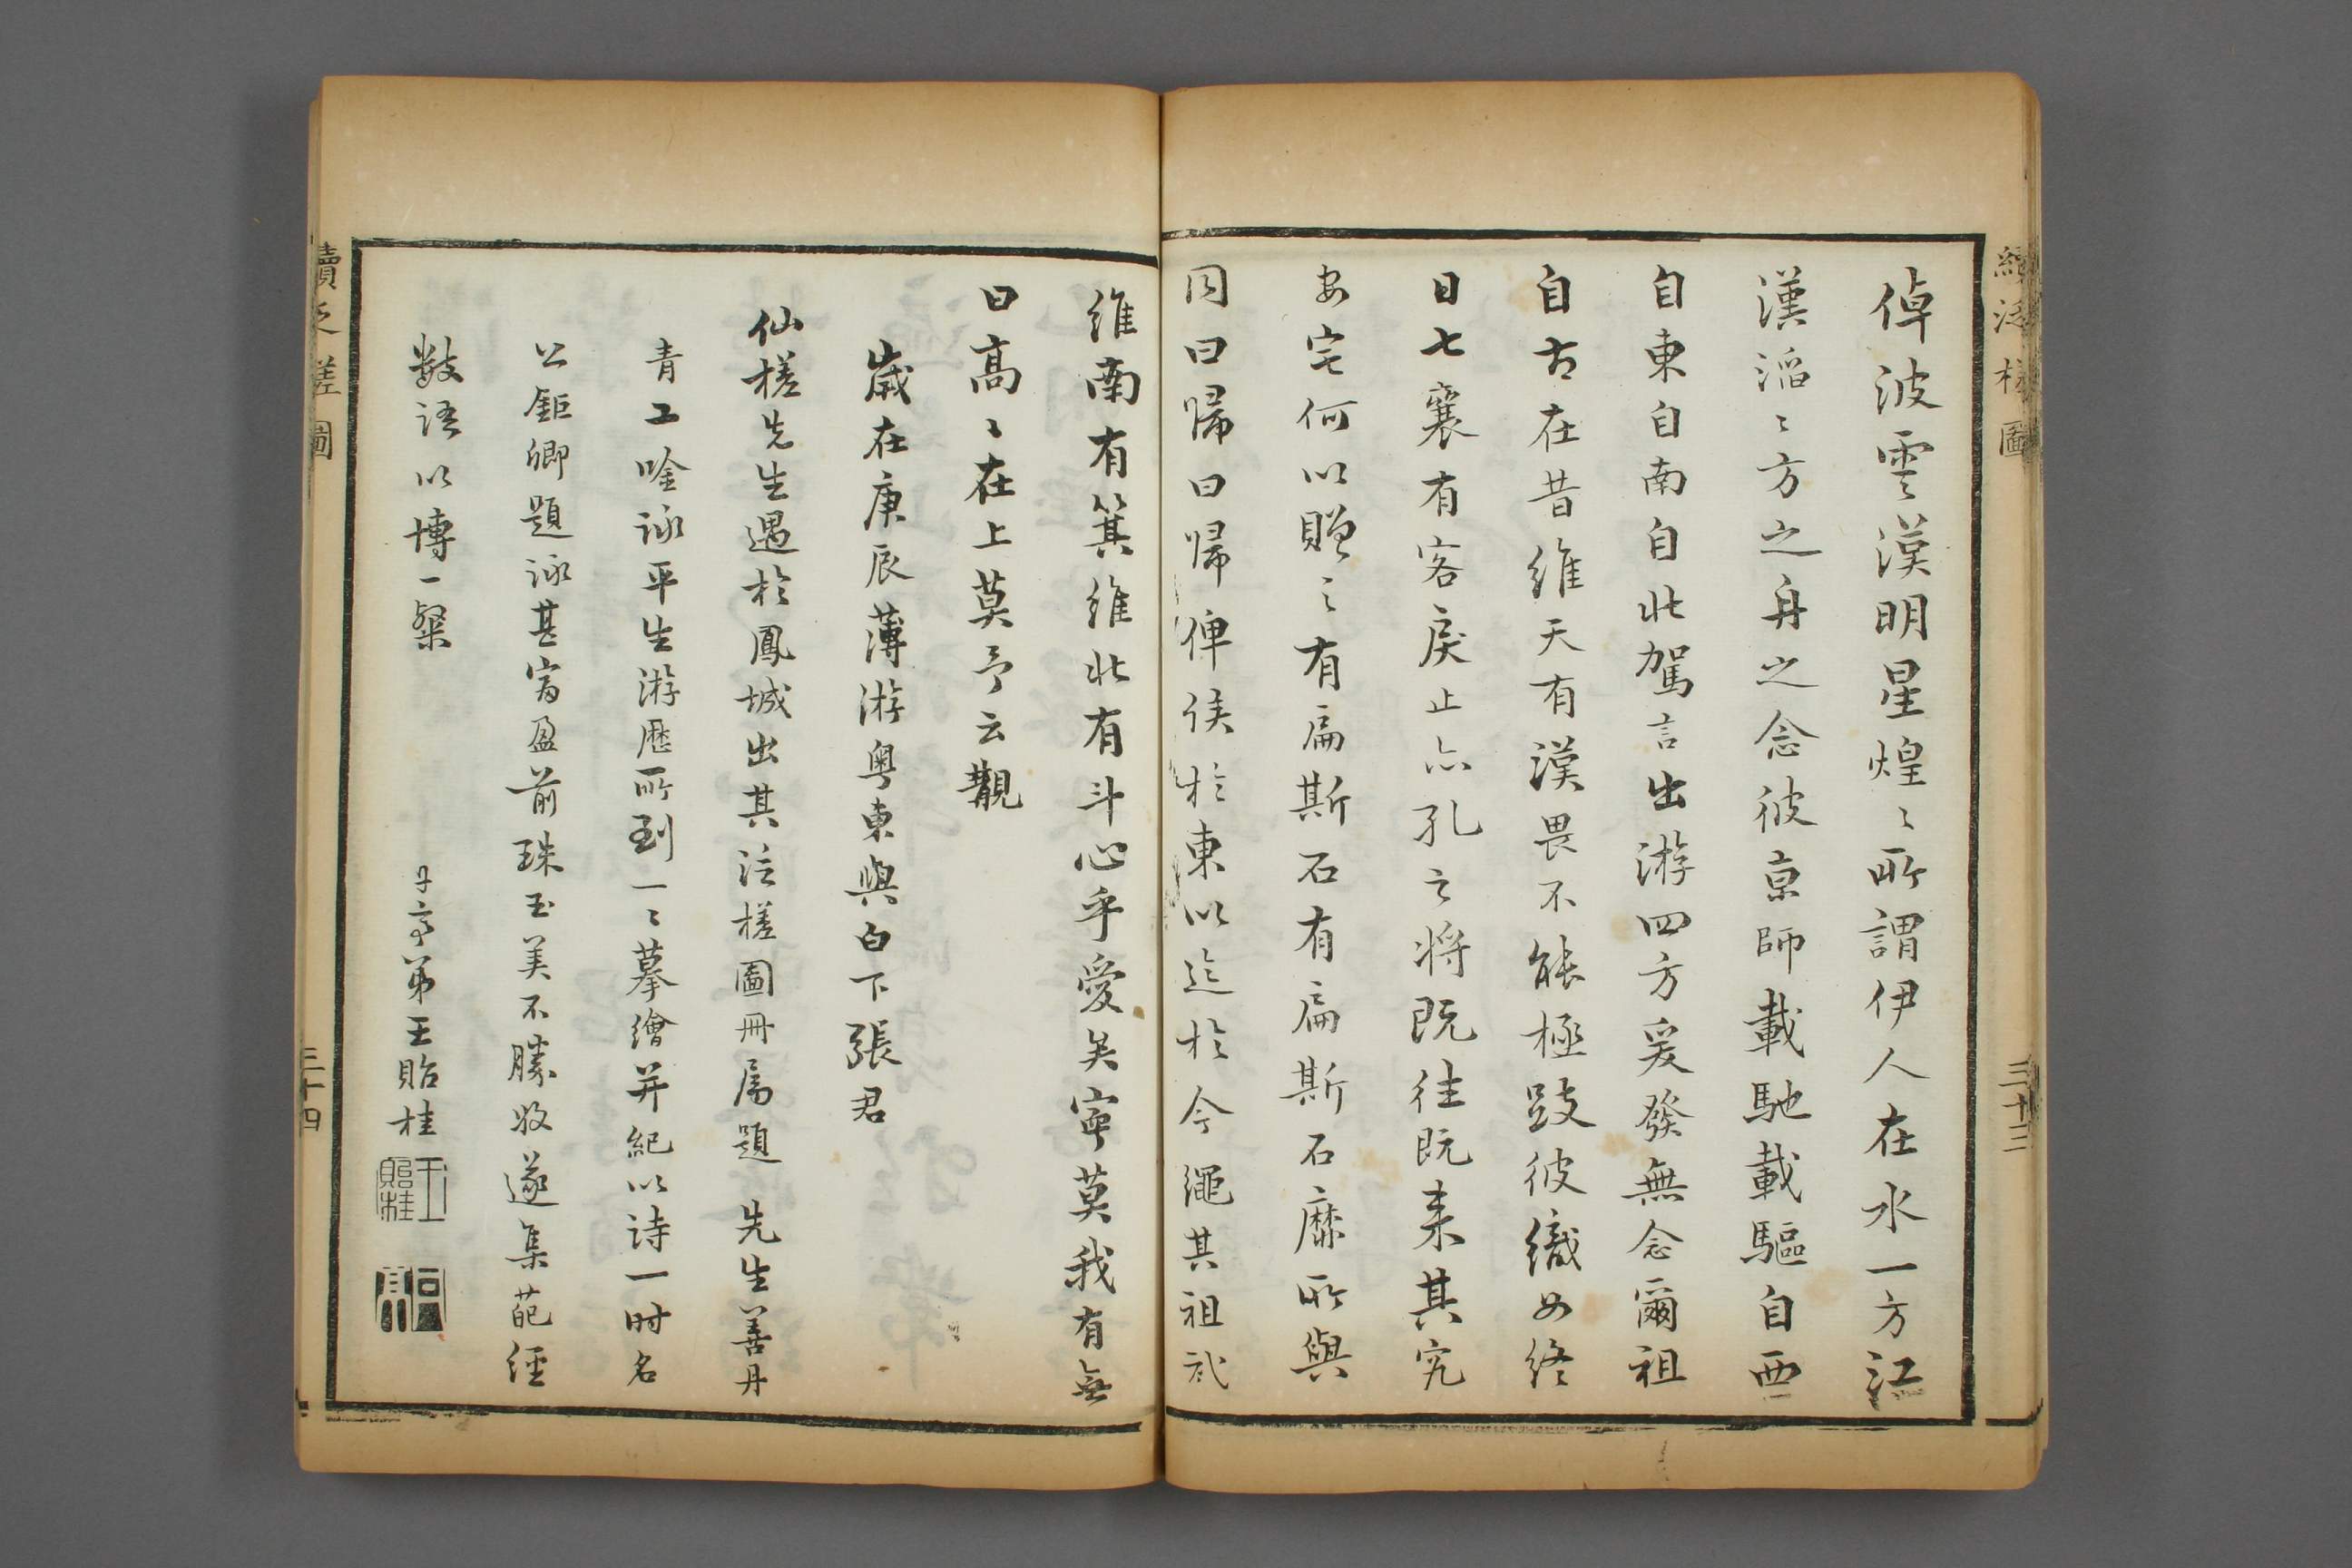 續泛槎圖
三十三
倬波雲漢明星煌〻所謂伊人在水一方江
漢滔〻方之舟之念彼京師載馳載驅自西
自東自南自北駕言出游四方爰發無念爾祖
自古在昔維天有漢畏不能極跂彼織女終
日七襄有客戾止亦孔之將既往既來其究
安宅何以贈之有扁斯石有扁斯石靡所與
同曰歸曰歸俾侯於東以迄於今繩其祖武
維南有箕維北有斗心乎愛矣寧莫我有無
曰高〻在上莫予云覯
歲在庚辰薄游粵東與白下張君
仙槎先生遇於鳳城出其泛槎圖冊屬題 先生善丹
青工唫詠平生游歷所到一〻摹繪并紀以詩一时名
公鉅卿題詠甚富盈前珠玉美不勝收遂集葩經
數語以博一粲
丹亭弟王貽桂
王貽桂
續泛槎圖
三十四